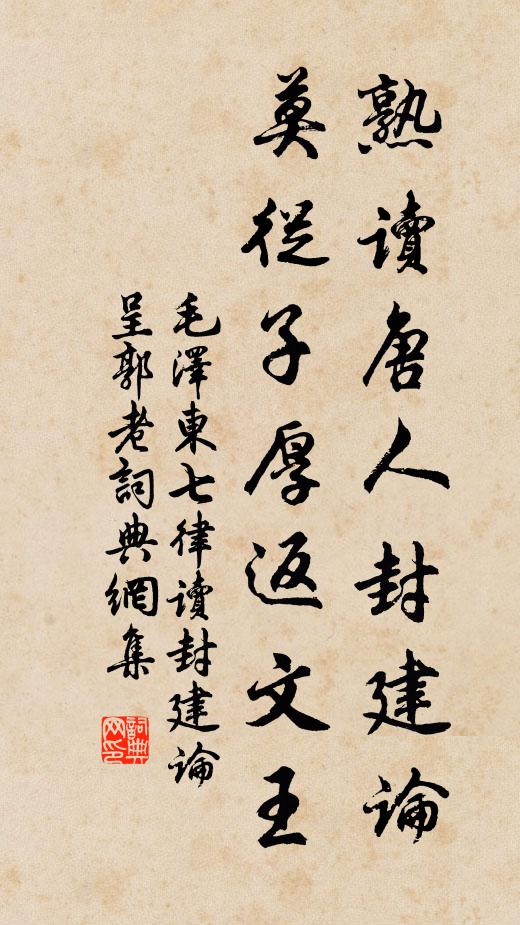 熟讀唐人封建論
莫從子厚返文王
毛澤東七律讀封建論
呈郭老詞典網集
詞典網印